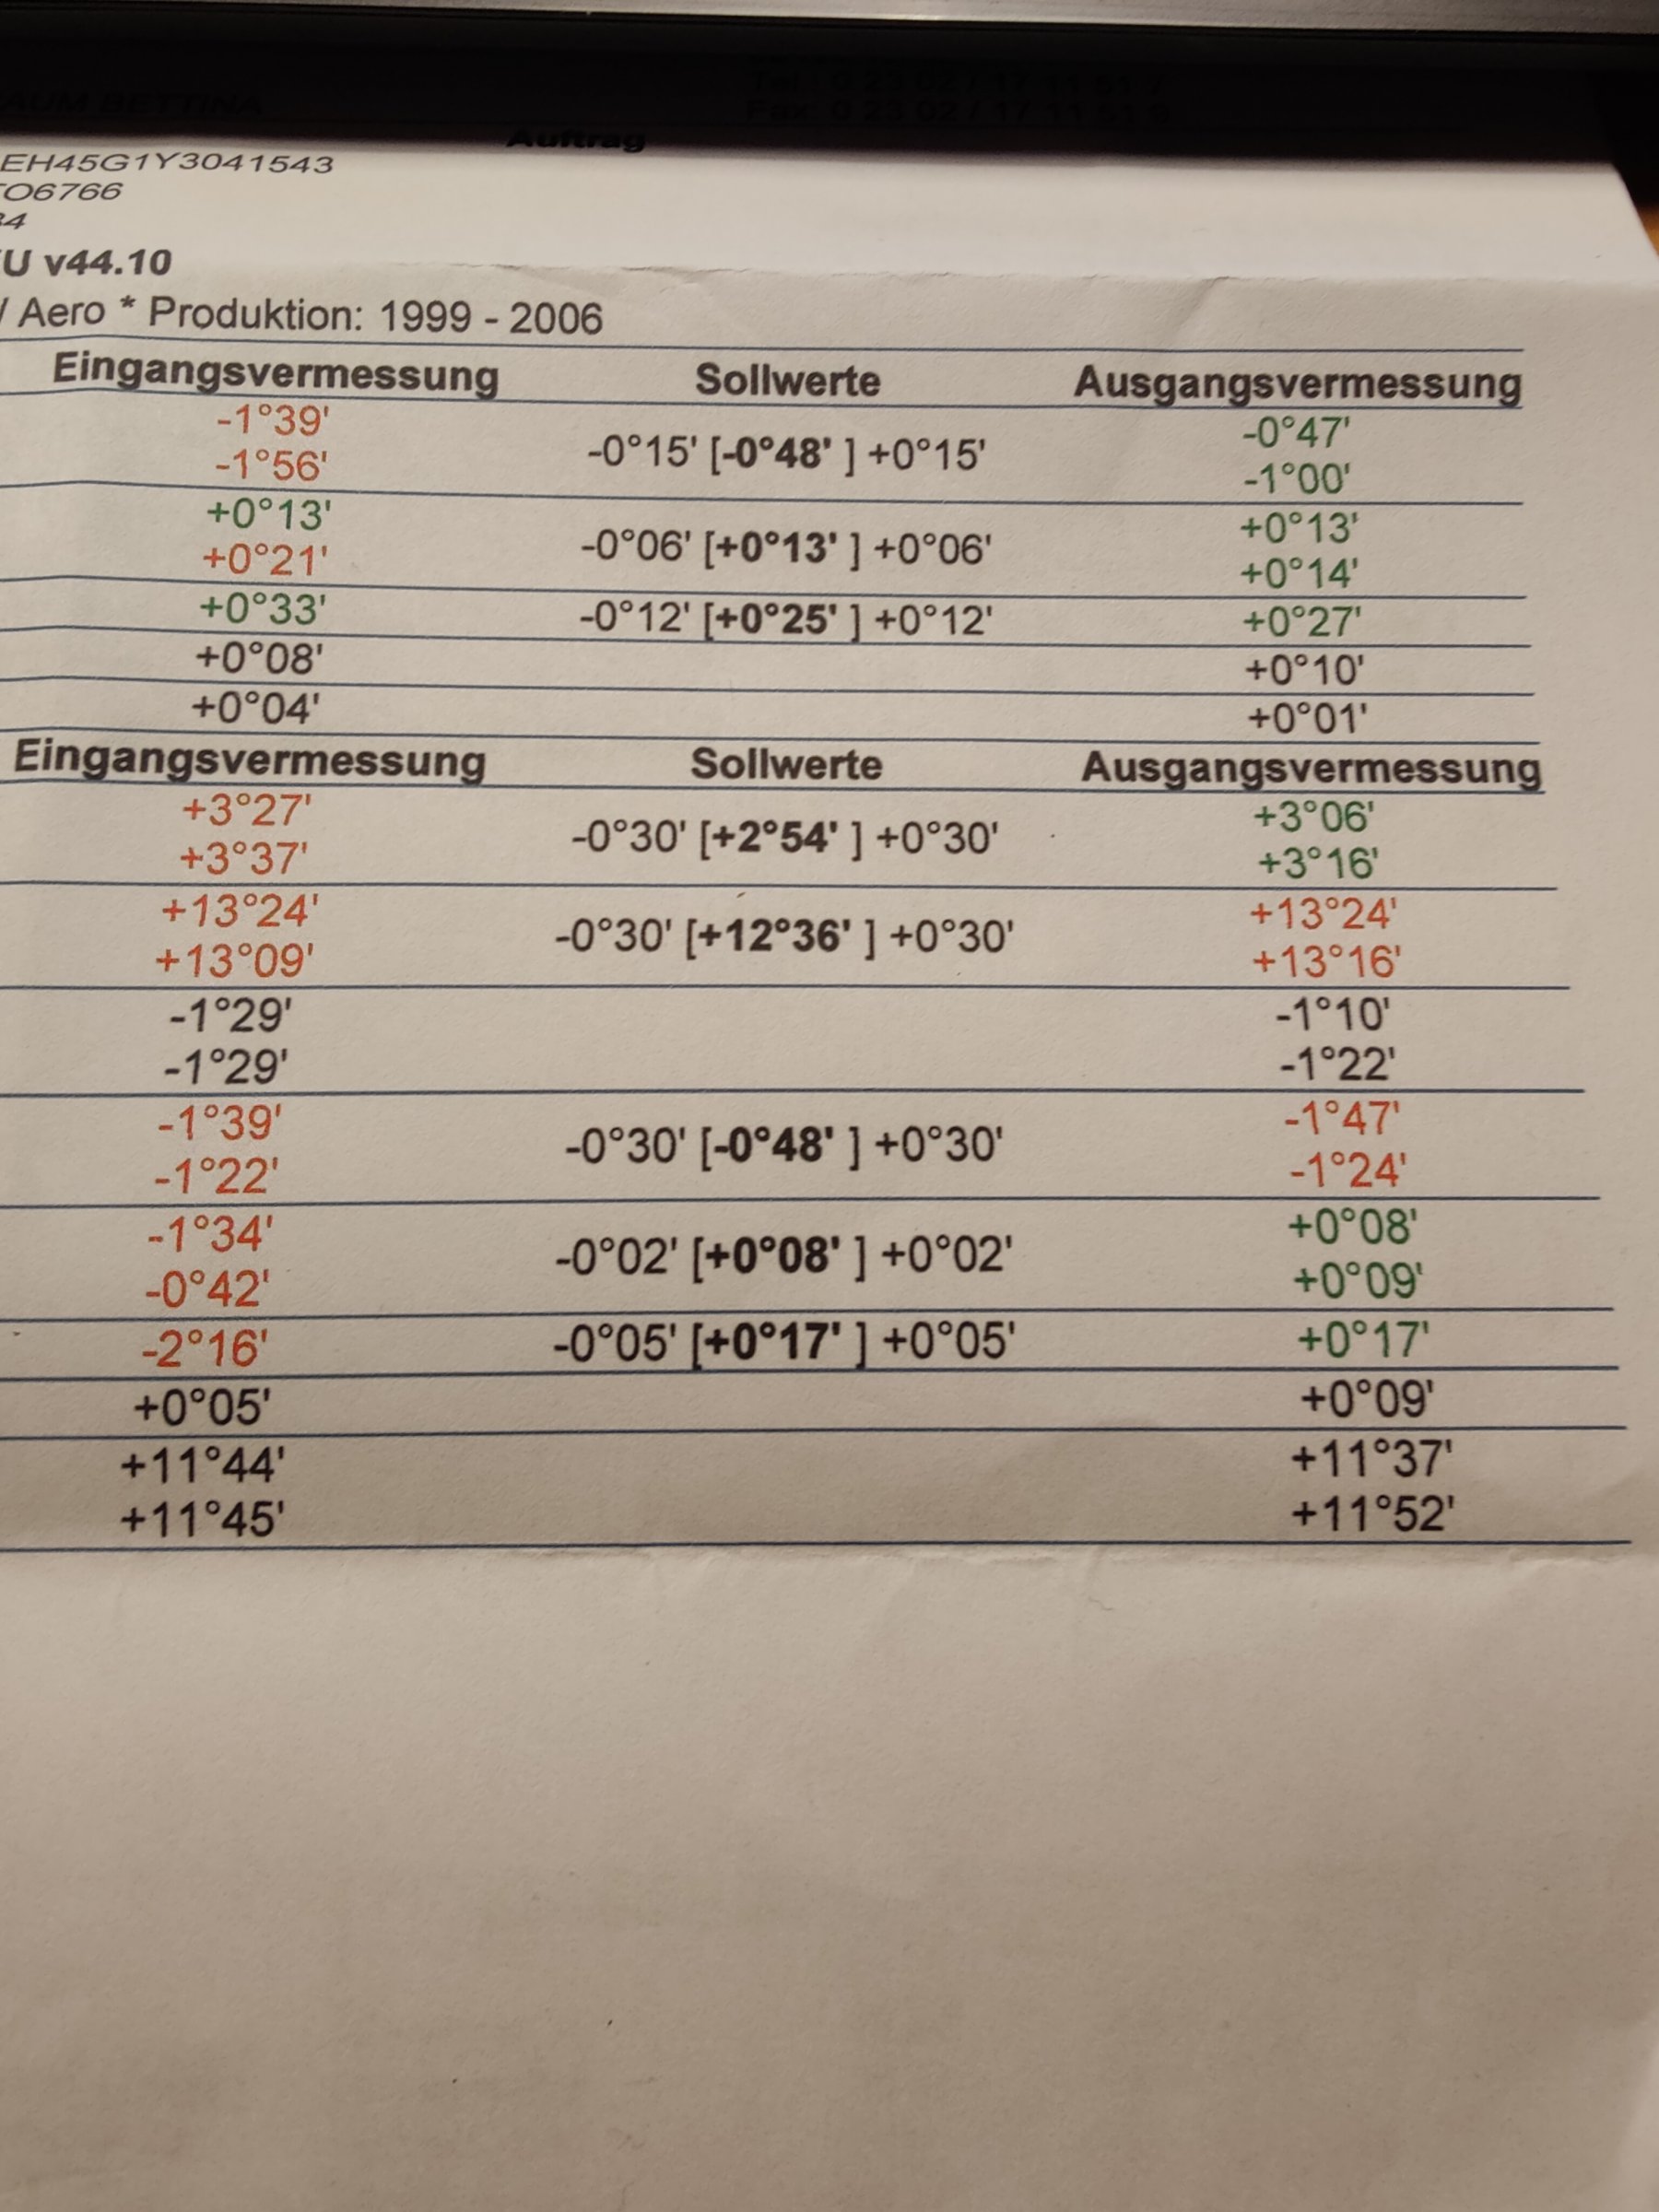 AUM BETTINA
Tel.: 0 23 02 / 17 11 51 7
Fax: 0 23 02 / 17 11 51 9
Auftrag
EH45G1Y3041543
O6766
34
U v44.10
/ Aero * Produktion: 1999 - 2006
Eingangsvermessung Sollwerte Ausgangsvermessung
-1°39' -0°47'
-0°15' [-0°48' ] +0°15'
-1°56' -1°00'
+0°13' +0°13'
-0°06' [+0°13' ] +0°06'
+0°21' +0°14'
+0°33' -0°12' [+0°25' ] +0°12' +0°27'
+0°08' +0°10'
+0°04' +0°01'
Eingangsvermessung Sollwerte Ausgangsvermessung
+3°27' +3°06'
-0°30' [+2°54' ] +0°30'
+3°37' +3°16'
+13°24' +13°24'
-0°30' [+12°36' ] +0°30'
+13°09' +13°16'
-1°29' -1°10'
-1°29' -1°22'
-1°39' -1°47'
-0°30' [-0°48' ] +0°30'
-1°22' -1°24'
-1°34' +0°08'
-0°02' [+0°08' ] +0°02'
-0°42' +0°09'
-2°16' -0°05' [+0°17' ] +0°05' +0°17'
+0°05' +0°09'
+11°44' +11°37'
+11°45' +11°52'